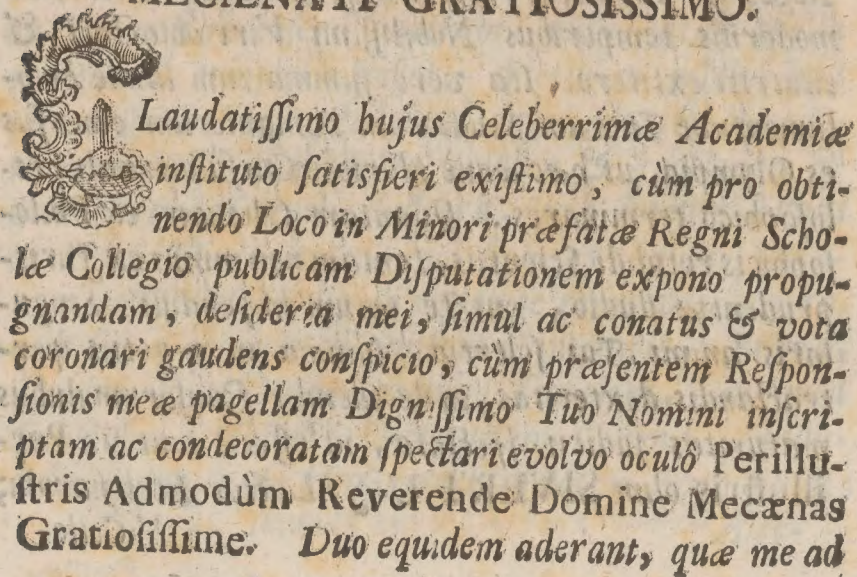 MECÆNATI GRATIOSISSIMO.
Laudatiſſimo hujus Celeberrimæ Academiæ
inſtituto ſatisfieri exiſtimo, cùm pro obti-
nendo Loco in Minori præfatæ Regni Scho-
læ Collegio publicam Diſputationem expono propu-
gnandam, deſideria mei, ſimul ac conatus & vota
coronari gaudens conſpicio, cùm præſentem Reſpon-
ſionis meæ pagellam Digniſſimo Tuo Nomini inſcri-
ptam ac condecoratam ſpectari evolvo oculô Perillu-
ſtris Admodùm Reverende Domine Mecænas
Gratioſiſſime. Duo equidem aderant, quæ me ad